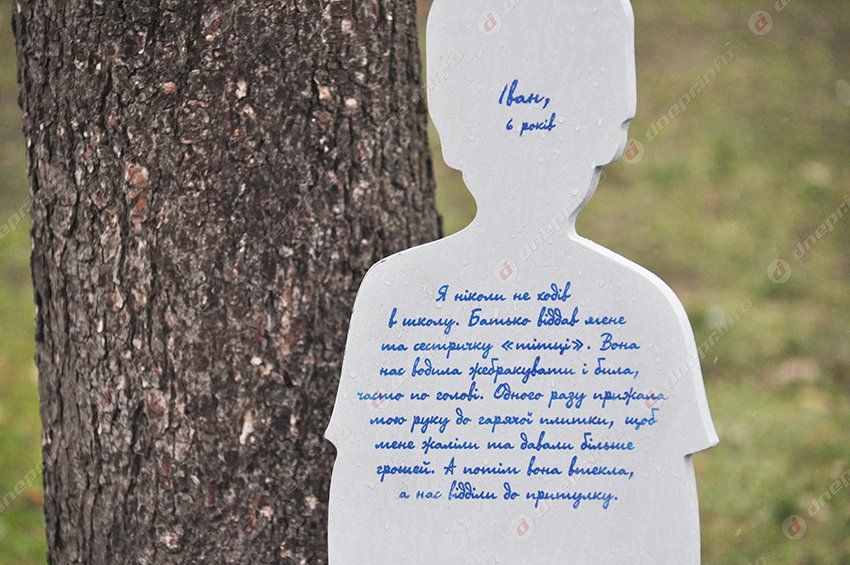 Іван,
6 років
Я ніколи не ходів
в школу. Батько віддав мене
та сестричку «тітці». Вона
нас водила жебракувати і била,
часто по голові. Одного разу прижала
мою руку до гарячої плитки, щоб
мене жаліли та давали більше
грошей. А потім вона втекла,
а нас відділи до притулку.
dnepr.info